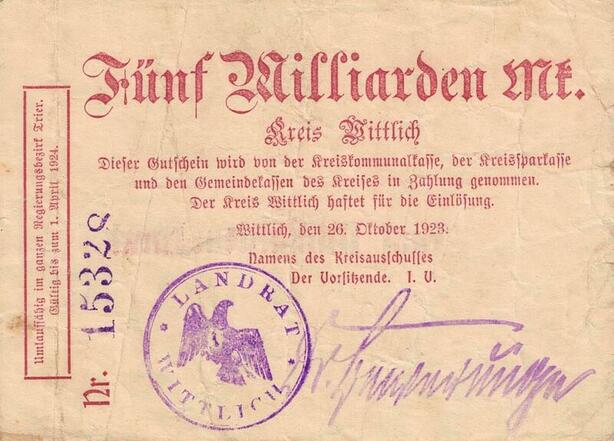 Fünf Milliarden Mk.
Kreis Wittlich
Dieser Gutschein wird von der Kreiskommunalkasse, der Kreissparkasse
und den Gemeindekassen des Kreises in Zahlung genommen.
Der Kreis Wittlich haftet für die Einlösung.
Wittlich, den 26. Oktober 1923.
Namens des Kreisausschusses
Der Vorsitzende. I. V.
Umlauffähig im ganzen Regierungsbezirk Trier.
Gültig bis zum 1. April 1924.
Nr. 15328
LANDRAT
WITTLICH